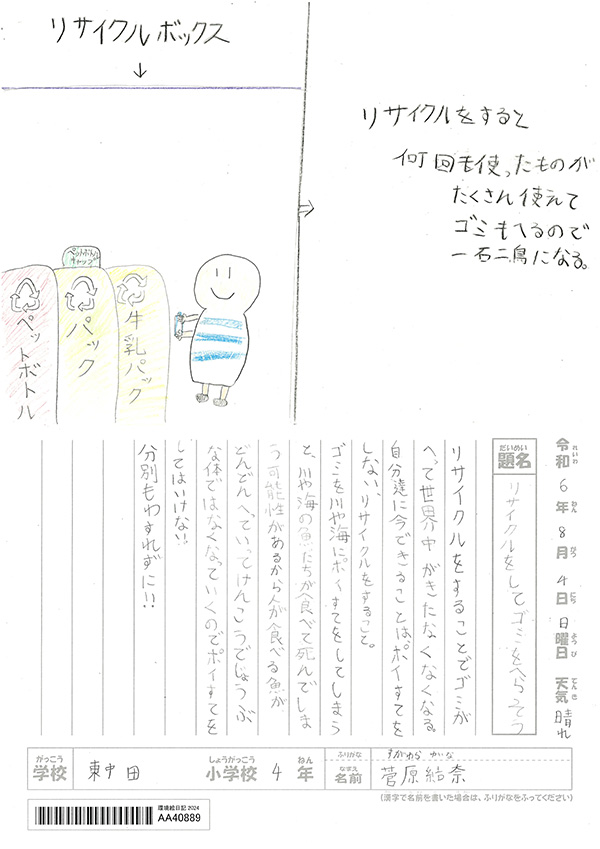 リサイクルボックス
↓
ペットボトル
キャップ
ペットボトル
パック
牛乳パック
⇒
リサイクルをすると
何回も使ったものが
たくさん使えて
ゴミもへるので
一石二鳥になる。
令和6年8月4日日曜日 天気 晴れ
れいわ ねん がつ にち ようび てんき
だいめい
題名
リサイクルをしてゴミをへらそう
リサイクルをすることでゴミが
へって世界中がきたなくなくなる
自分達に今できることはポイすてを
しない、リサイクルをすること。
ゴミを川や海にポイすてをしてしまう
と、川や海の魚たちが食べて死んでしま
う可能性があるから人が食べる魚が
どんどんへっていってけんこうでじょうぶ
な体ではなくなっていくのでポイすてを
してはいけない!!
分別もわすれずに!!
がっこう
学校
東中田
しょうがっこう
小学校
4
ねん
年
ふりがな
すがわら かいな
なまえ
名前
菅原結奈
(漢字で名前を書いた場合は、ふりがなをふってください)
環境絵日記 2024
AA40889